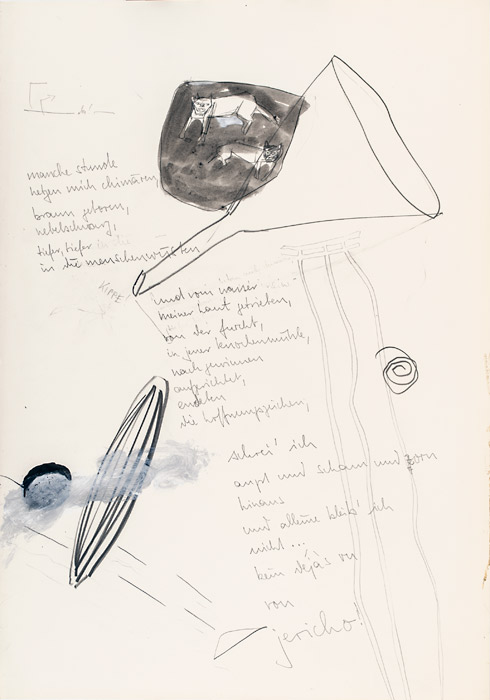 manche stunde
hetzen mich chimären,
braun geboren,
nebelschwarz,
tiefer, tiefer
in die menschenwüsten
KIPPE
und vom wasser
meiner haut getrieben,
von der furcht,
in jener knochenmühle,
nach gewinnen
aufgerichtet,
enden
die hoffnungszeichen,
schrei' ich
angst und scham und zorn
hinaus
und alleine bleib' ich
nicht...
kein déjà vu
von
jericho!